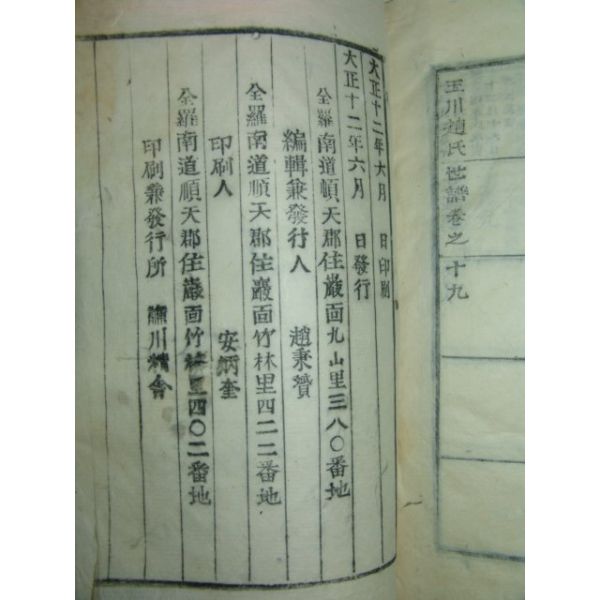 玉川趙氏世譜卷之十九
大正十二年六月 日印刷
大正十二年六月 日發行
全羅南道順天郡住巖面九山里三八〇番地
編輯兼發行人 趙秉瓚
全羅南道順天郡住巖面竹林里四二二番地
印刷人 安炳奎
全羅南道順天郡住巖面竹林里四〇二番地
印刷兼發行所 川精舍